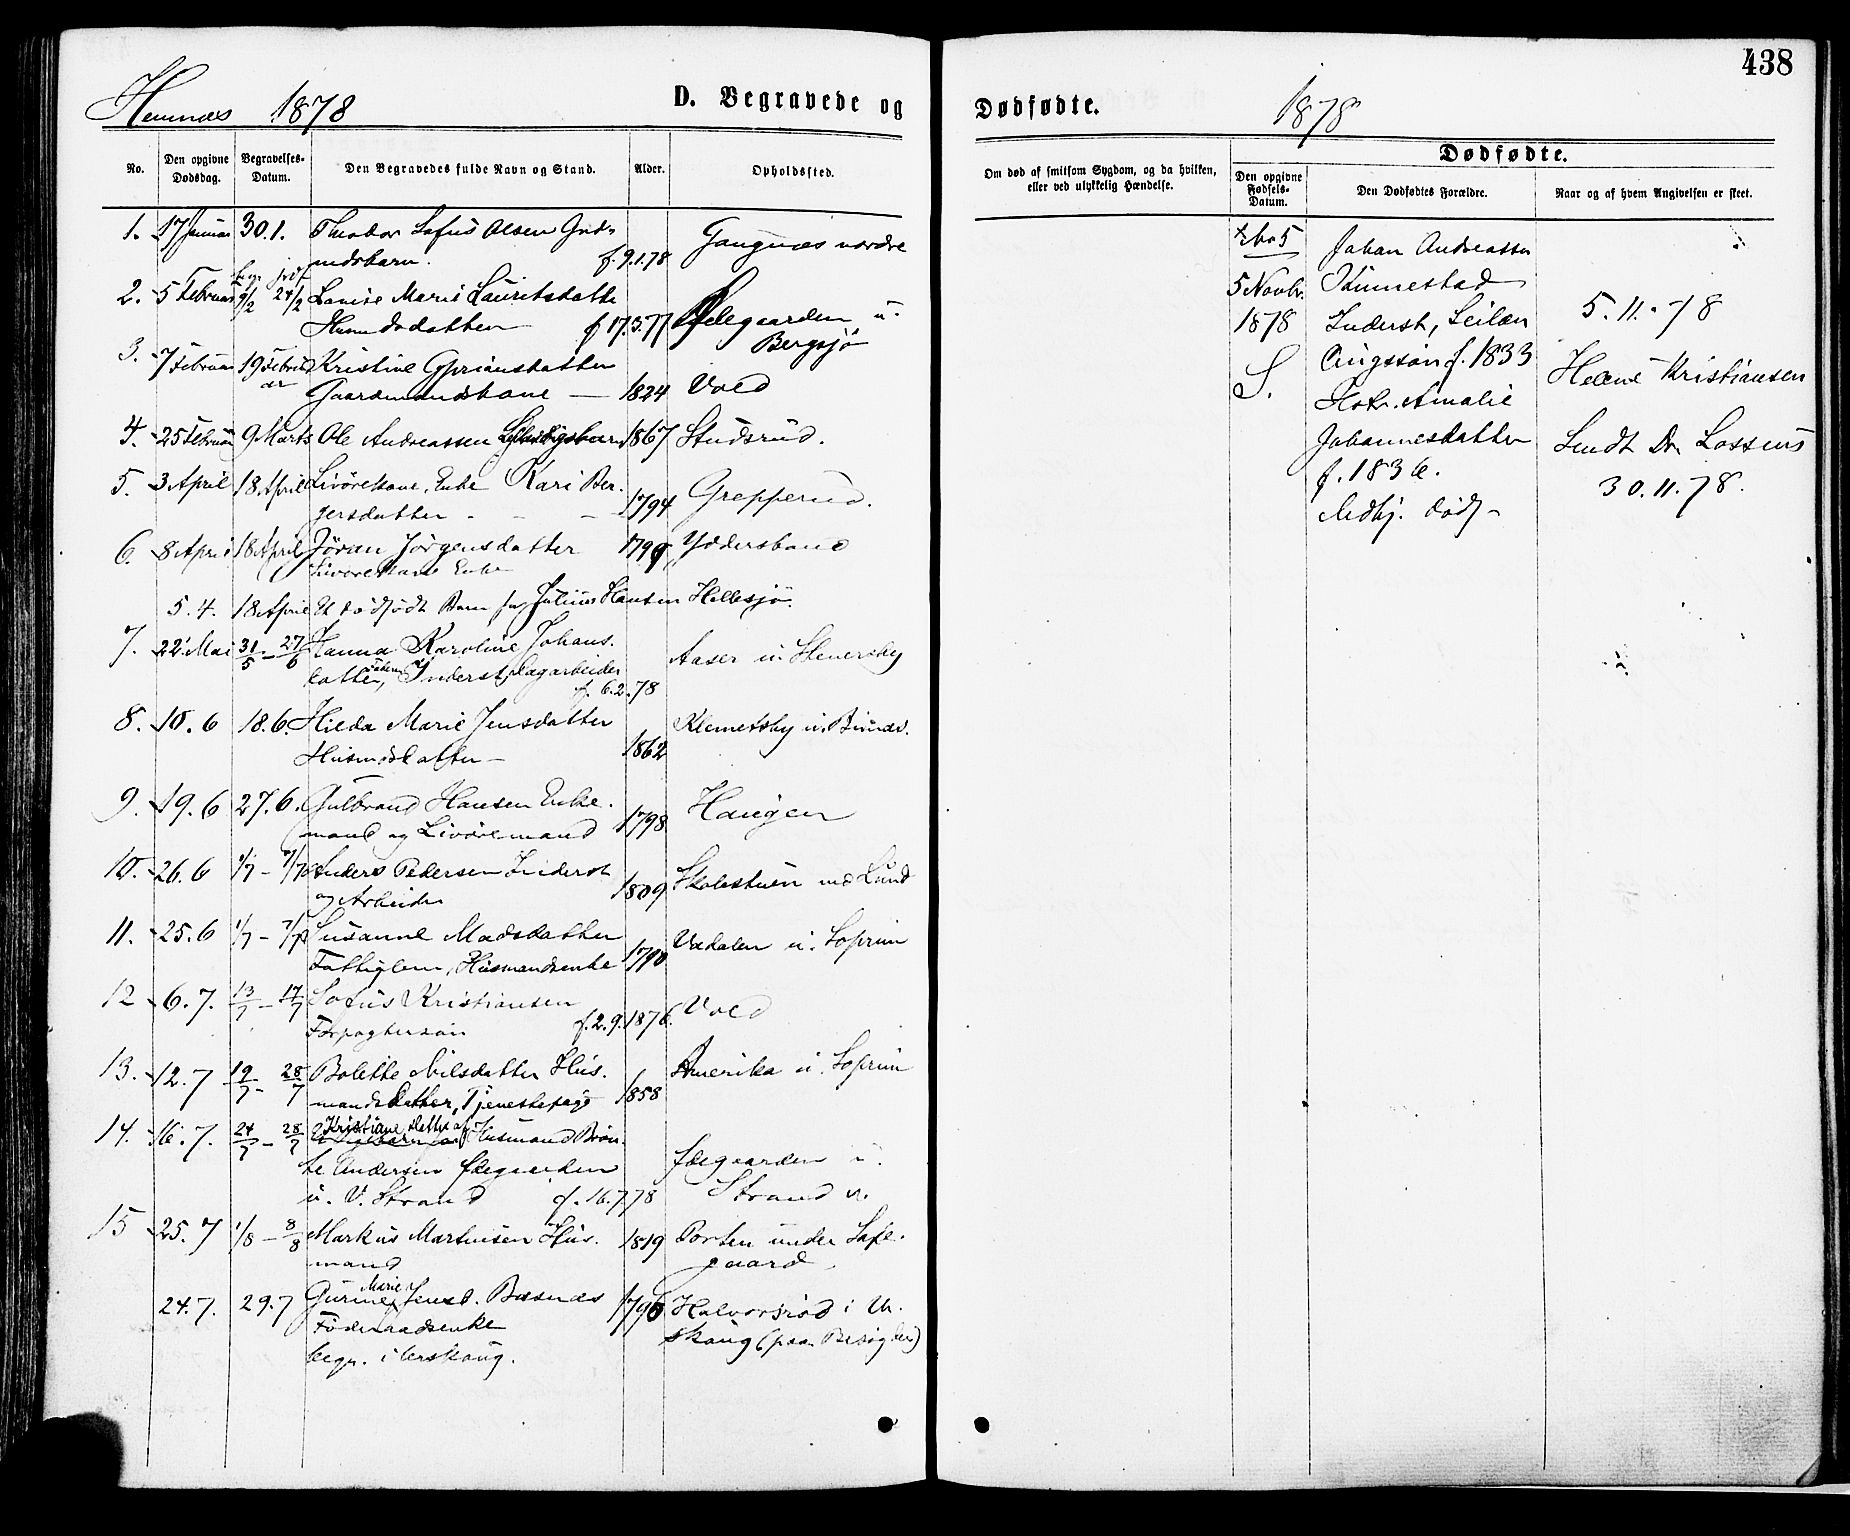 438
Hemnæs 1878
D. Begravede og Dødfødte.
1878
No.
Den opgivne Dødsdag.
Begravelses-Datum.
Den Begravedes fulde Navn og Stand.
Alder.
Opholdssted.
Om død af smitsom Sygdom, og da hvilken, eller ved ulykkelig Hændelse.
Dødfødte.
Den opgivne Fødsels-Datum.
Den Dødfødtes Forældre.
Naar og af hvem Angivelsen er skeet.
1. 17 Januar 30.1. Theodor Sofus Olsen Grd-
mdsbarn. f. 9.1.78 Gangnæs nordre
2. 5 Februar 9/2 24/2 Lovise Marie Lauritsdatter
Husmdsdatter f 17.3.77 Pelegaarden u.
Bergsjø
3. 7 Februar 19 Februar Kristine Gprianusdatter
Gaardmandskone 1824 Vold
4. 25 Februar 9 Marts Ole Andreassen 1867 Studsrud.
5. 3 April 18 April Livørekone, Enke Kari Ber-
gersdatter 1794 Grepperud.
6. 8 April 18 April Jøran Jørgensdatter 1799 Ydersbond
Livørekone Enke
5.4. 18 April Et dødfødt Barn for Julius Hansen Hellesjø.
7. 22 Mai 31/5 - 27/6 Hanna Karoline Johans-
datter, Inderst, Dagarbeider
f. 6.2.78 Aaser u. Stenersby
8. 10.6 18.6. Hilda Marie Jensdatter
Husmdsdatter 1862 Klemetsby u.
9. 19.6 27.6. Gulbrand Hansen Enke-
mand og Livøremand 1798 Haugen
10. 26.6 1/7 - 7/7 Anders Pedersen Inderst
og Arbeider 1809 Skolestuen ved Lund
11. 25.6 1/7 - 7/7 Susanne Madsdatter
Fattiglem, Husmandsenke 1790 Vadalen u. Soprim
12 6.7. 13/7 - 17/7 Sofus Kristiansen
Forpagtersøn f. 2.9.1876. Vold
13. 12.7 19/7 - 28/7 Bolette Nilsdatter Hus-
mandsdatter, Tjenestepige 1858 Amerika u. Soprim
14. 16.7. 24/7 - 28/7 Kristiane Datter af Husmand Brøn-
te Andersen
u. V. Strand f. 16.7.78 Strand v.
15 25.7 1/8 - 8/8 Markus Martinsen Hus-
mand 1819 Porten under Safe-
gaard
24.7. 29.7 Gurine Marie Jensd. Bæsnæs
Føderaadsenke 1796 Halvorsrød i Ur-
skoug (paa Besøg der)
begr. i Urskoug.
5 Novbr.
1878
S.
Johan Andreassen
Kinnestad
Inderst,
f. 1833
Hstr. Amalie
Johannesdatter
f. 1836.
5.11.78
Helene Kristiansen
Sendt Dr. Lossius
30.11.78.